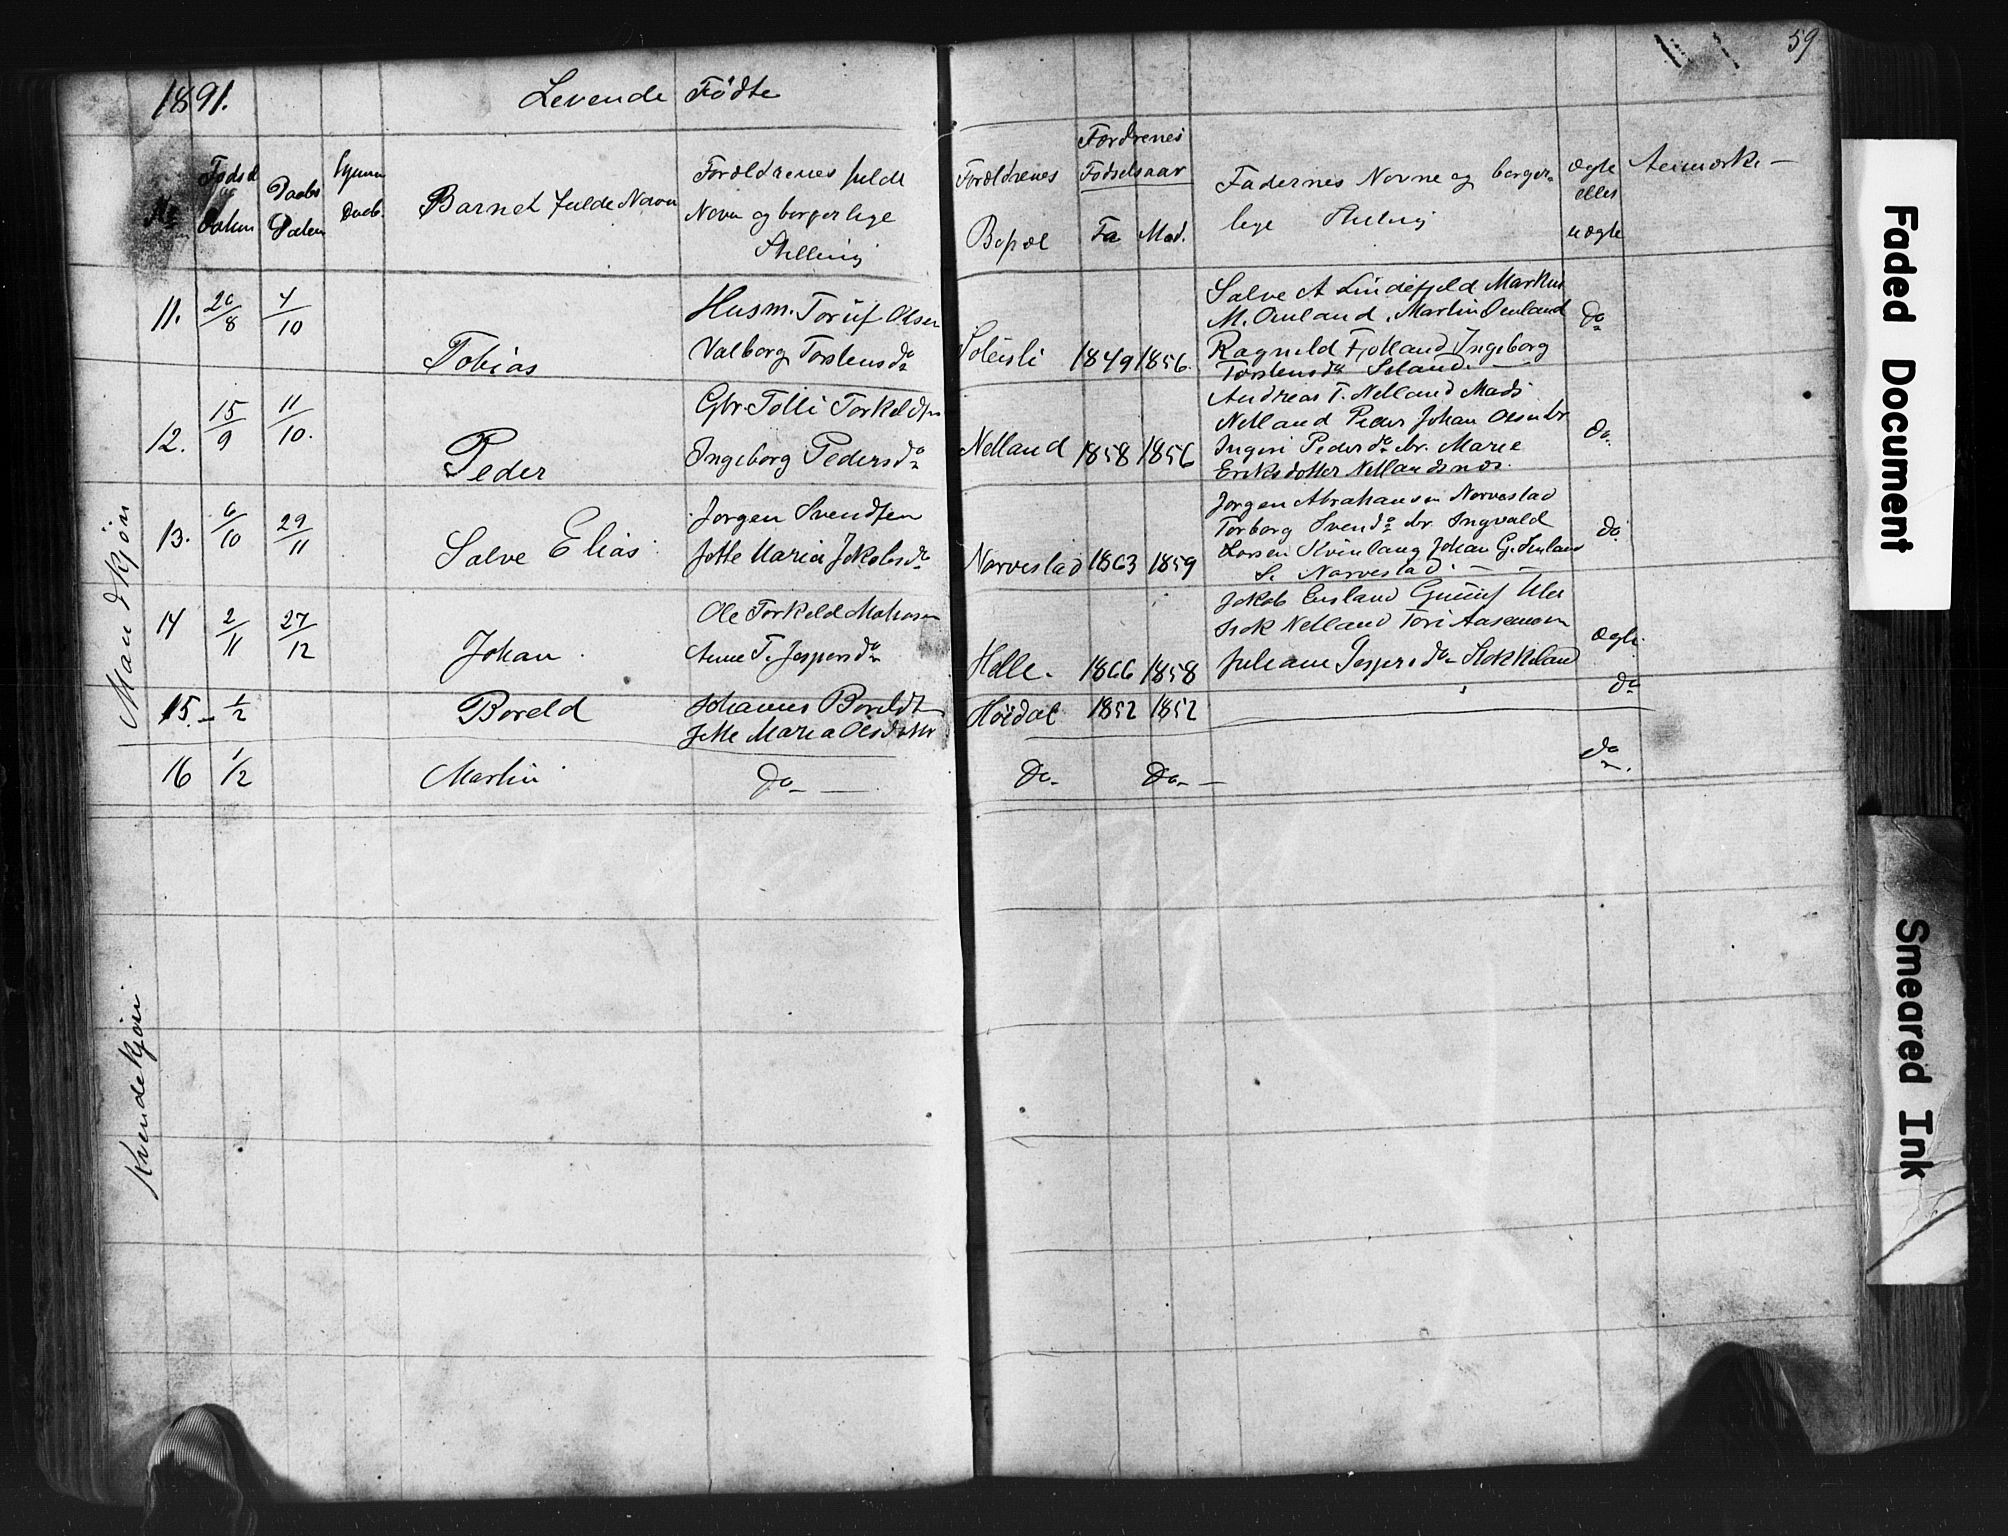 59
1891. Levende Fødte
No
Fødsels Datum
Daabs Datum
Hjemme daab.
Barnet fulde Navn
Forældrenes fulde
Navn og borgerlige
Stilling
Forældrenes
Bopæl
Fordrenes
Fødselsaar
Fa Mod.
Fadernes Navne og borger-
lige Stilling
Ægte
eller
uægte
Anmærk. —
Mandkjøn
11. 20/8 4/10 Tobias
Husm. Toruf Olsen
Valborg Torstensda
Soleisli 1849 1856.
Salve A Lindefjeld Markus
M. Omland. Martin Omland
Ragnild Fjolland Ingeborg
Torstensda Seland.
do
12. 15/9 11/10. Peder
Gbr. Tolli Torkeldsen
Ingeborg Pedersda
Netland 1858 1856
Andreas T. Netland Mads
Netland Peder Johan Olsen br
Ingeri Pedersda br. Marie
Eriksdotter Netlandsnes.
do.
13. 6/10 29/11 Salve Elias
Jørgen Svendsen
Jette Maria Jakobsda
Narvestad 1863 1859
Jørgen Abrahamsen Narvestad
Torborg Svenda br. Ingvald
Larsen Kvinlaug Johan G.
S. Narvestad. — —
do.
14 2/11 27/12 Johan.
Ole Torkeld
Anne T. Jespersda
Helle. 1866 1858
Jakob Gunuf
Netland Tori
Juliane Jespersda Stokkeland
Ægte.
15. - 1/2 Boreld
Johannes Boreldt
Jette Maria Olsdotter
Høidal 1852 1852
do
16 1/2 Martin
do — do. do. —
do.
Kvendekjøn
Faded Document
Smeared Ink